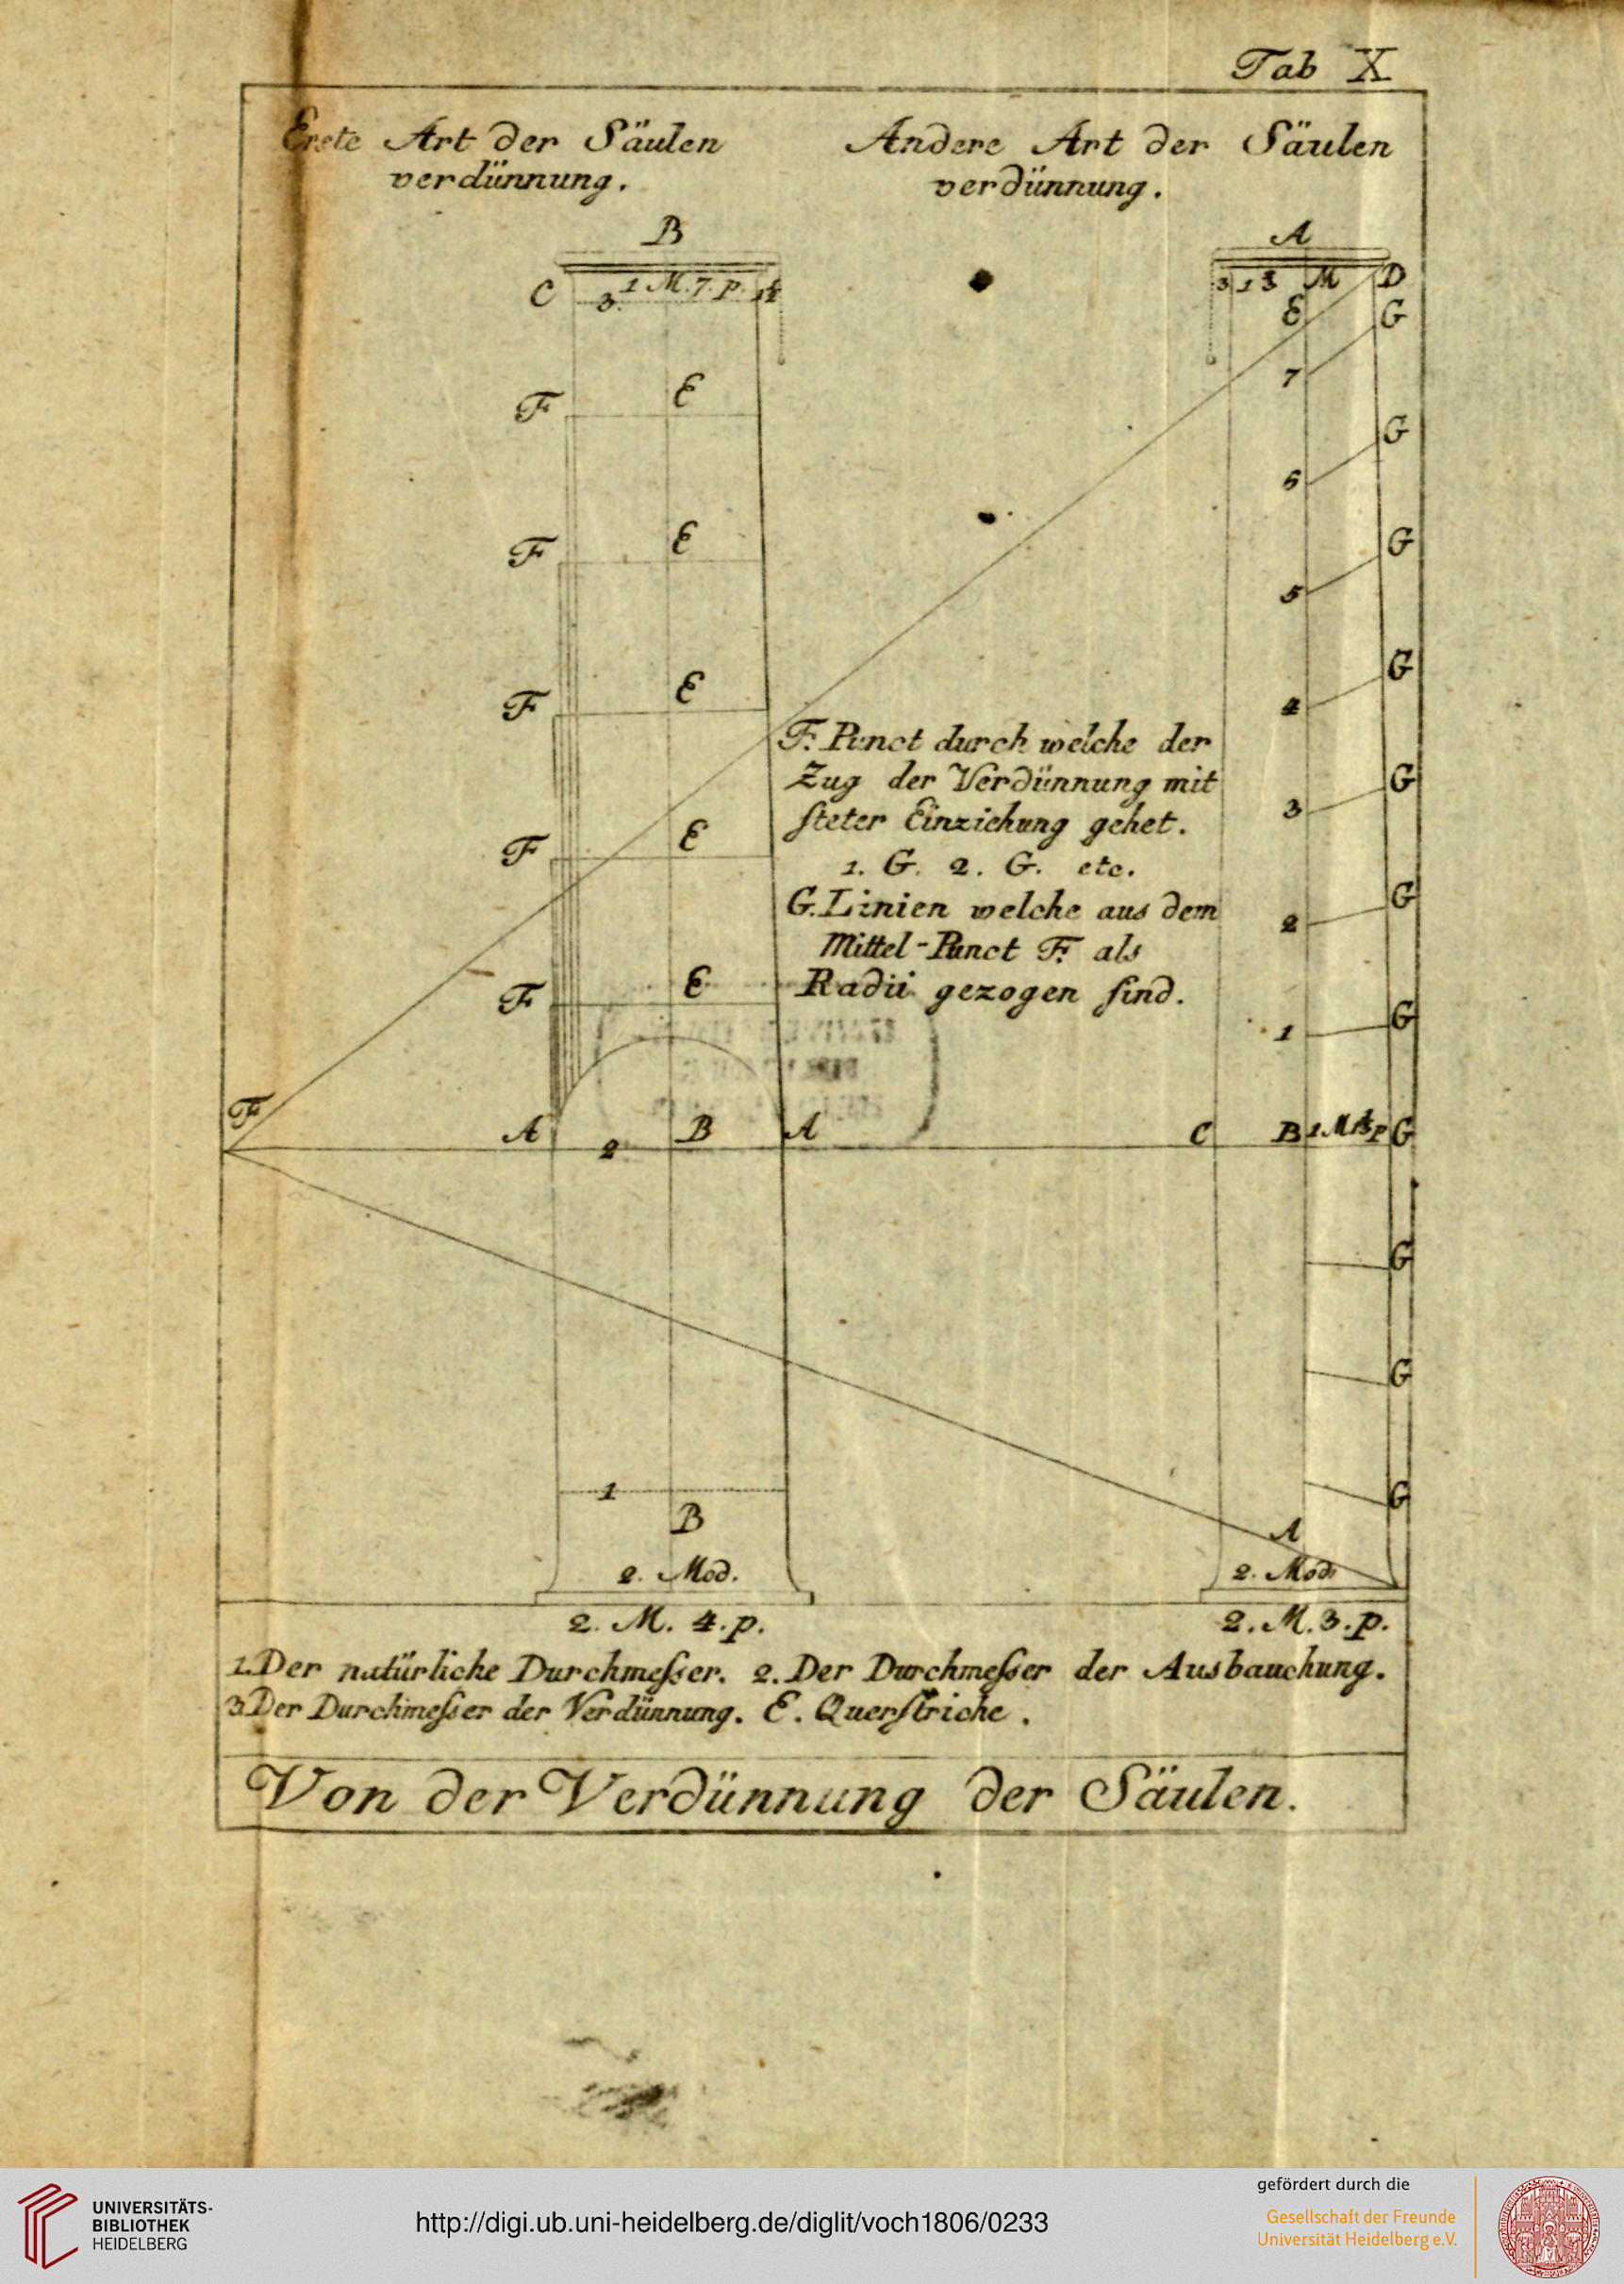 Tab X
Erste Art der Säulen
verdünnung.
Andere Art der Säulen
verdünnung.
B
C
3.
1 M. 7. p.
A
3
M
D
E
G
7
F
E
G
6
F
E
G
5
F
E
G
4
F. Punct durch welche der
Zug der Verdünnung mit
steter Einziehung gehet.
1. G. 2. G. etc.
G. Linien welche aus dem
Mittel-Punct F. als
Radii gezogen sind.
G
3
F
E
G
2
F
E
G
1
F
A
2
B
A
C
B
G
G
G
G
1
B
2. Mod.
A
2. Mod.
2. M. 4. p.
2. M. 3. p.
1. Der natürliche Durchmesser. 2. Der Durchmesser der Ausbauchung.
3. Der Durchmesser der Verdünnung. E. Querstriche.
Von der Verdünnung der Säulen.
UNIVERSITÄTS-
BIBLIOTHEK
HEIDELBERG
http://digi.ub.uni-heidelberg.de/diglit/voch1806/0233
gefördert durch die
Gesellschaft der Freunde
Universität Heidelberg e.V.